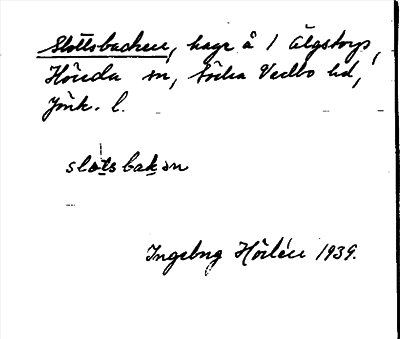 Slottsbacken, hage å 1 Älgstorp,
Höreda sn, Södra Vedbo hd,
Jönk. l.
slotsbakən
Ingeborg Hörlén 1939.